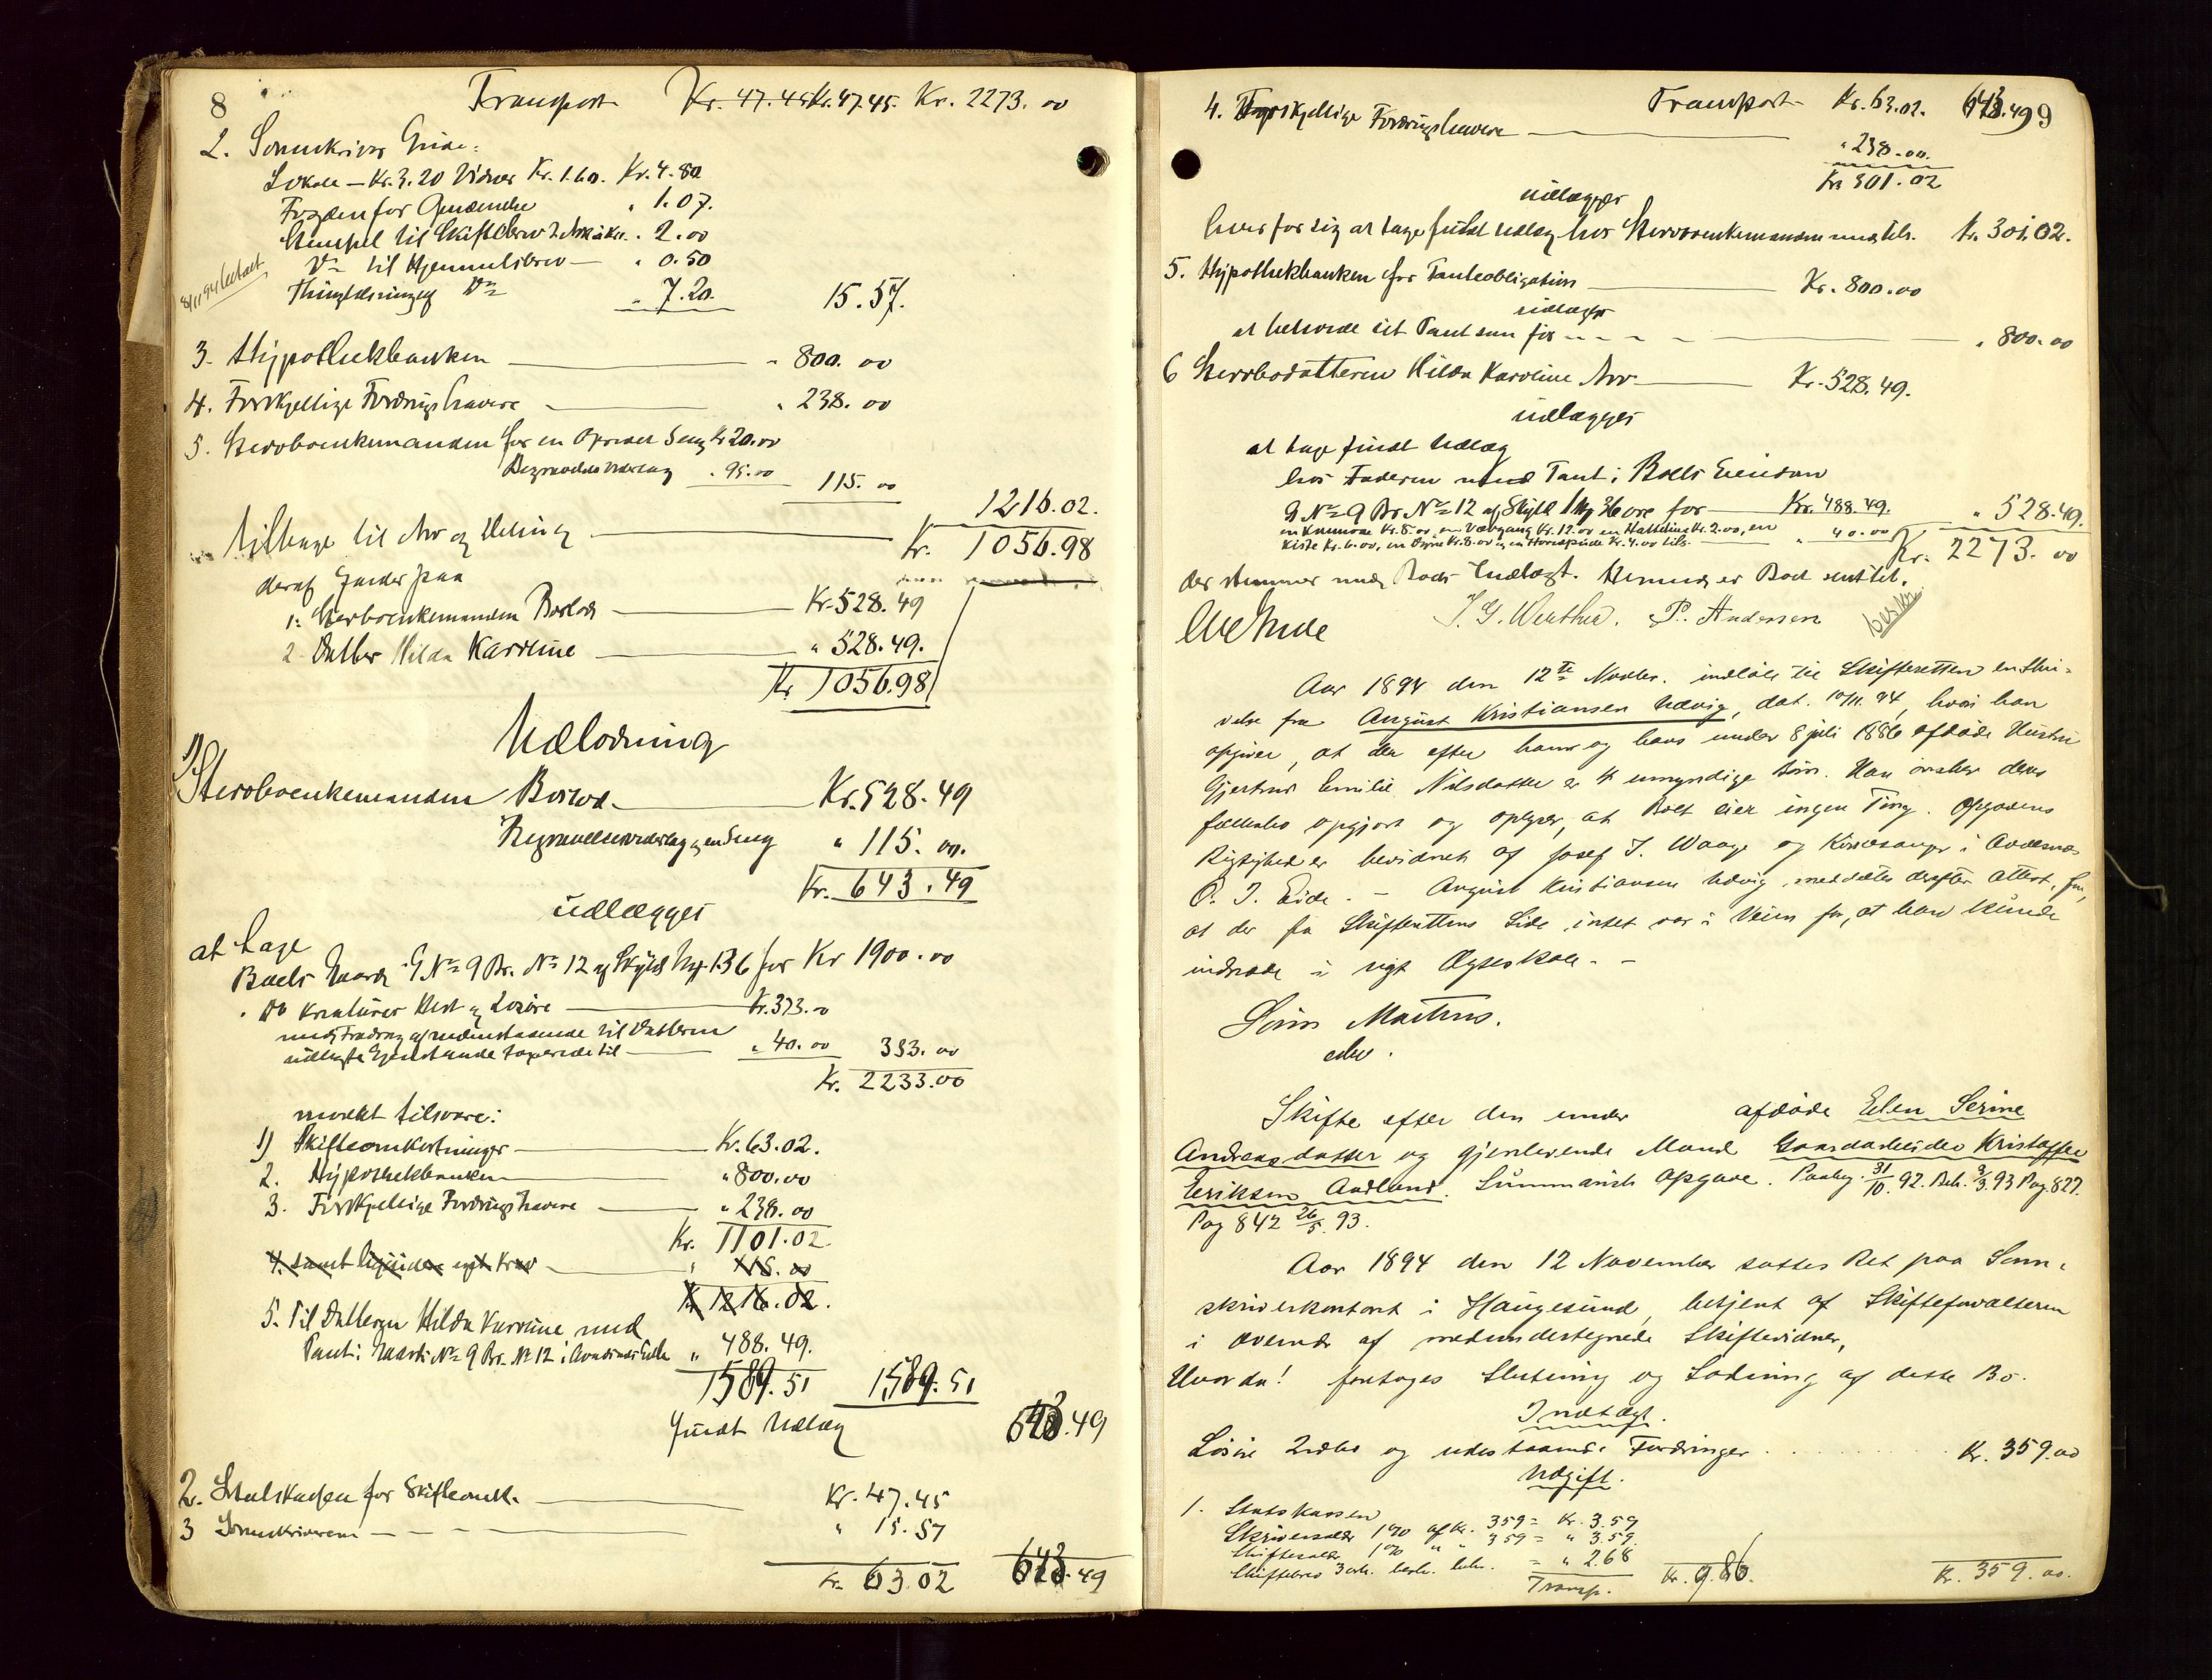 8 Transport Kr. 47.45 Kr. 47.45. Kr. 2273. 00
2. Sorenskriver Gude:
Lokale — Kr. 3.20 Vidner Kr. 1.60. Kr. 4.80
Fogden for " 1.07.
Stempel til Skiftebrev 2 Ark à Kr. " 2.00
Do til Hjemmelsbrev — " 0.50
Thinglæsning af Do " 7.20. 15.57.
3. Hypothekbanken — " 800. 00
4. Forskjellige Fordringshavere — " 238. 00
5. Stervboenkemanden for en Opredt Seng Kr 20.00
Begravelsesvederlag " 95.00 115. 00
1216.02.
tilbage til Arv og Deling — Kr. 1056.98
deraf falder paa
1. Stervboenkemanden Boslod — Kr. 528.49
2. Datter Hilda Karoline — " 528.49.
Kr 1056.98
Udlodning
1) Stervboenkemanden Boslod — Kr. 528.49
Begravelsesvederlag og en Seng " 115. 00.
Kr. 643.49
udlægges
at tage
Boets Gaard G No 9 Br. No 12 af Skyld Mk 1.36 for Kr 1900.00
" Do Kreaturer Hest og Løsøre — Kr. 373.00
med Fradrag af nedenstaaende til Datteren
udlagte Gjenstande taxerede til — " 40.00 333.00
Kr. 2233.00
modat tilsvare:
1) Skifteomkostninger — Kr. 63.02.
2. Hypothekbanken " 800.00
3. Forskjellige Fordringshavere — " 238.00
Kr. 1101.02
4. samt ligesidene egt Krav — " 115.00
Kr 1216.02.
5. Til Datteren Hilda Karoline med
Pant i Gaards No 9 Br. No 12 i " 488.49.
1589.51 1589.51
fuldt Udlæg 643.49
2. Statskassen for Skifteomk. — Kr. 47.45
3 Sorenskriveren — " 15.57
Kr. 63.02 643.49
Transport Kr. 63.02. 643.49 9
4. Forskjellige Fordringshavere — " 238.00.
Kr 301.02
udlægges
hver for sig at tage fuldt Udlæg hos Stervboenkemanden med tils. Kr. 301.02.
5. Hypothekbanken for Panteobligation — Kr. 800.00
udlægges
at beholde sit Pant som før — " 800.00
6 Stervbodatteren Hilda Karoline Arv — Kr. 528.49.
udlægges
at tage fuldt Udlæg
hos Faderen med Pant i Boets Eiendom
G No 9 Br No 12 af Skyld 1 Mk 36 øre for — Kr. 488.49.
en Kommode Kr. 8.00, en Vævgang Kr. 12.00 en Kr. 2.00, en
Kiste Kr. 6.00, en Dyne Kr. 8.00 og en Kr. 4.00 tils. — " 40.00 " 528.49.
Kr. 2273. 00
der stemmer med Boets Indtægt. Hermed er Boet sluttet.
J. G. Werther. P. Andersen
Aar 1894 den 12te Novbr. indløb til Skifteretten en Skri-
velse fra August Kristiansen Udvig, dat. 10/11. 94, hvori han
opgiver, at der efter ham og hans under 8 juli 1886 afdøde Hustru
Gjertrud Emilie Nilsdatter er 4 umyndige Børn. Han ønsker deres
fællesbo opgjort og oplyser, at Boet eier ingen Ting. Opgavens
Rigtighed er bevidnet af Josef J. Waage og Kirkesanger i Avaldsnes
O. J. Eide. – August Kristiansen Udvig meddeltes derefter Attest for,
at der fra Skifterettens Side intet var i Veien for, at han kunde
indtræde i nyt Ægteskab. –
Sörin Martens.
edv.
Skifte efter den under afdøde Elen Serine
Andreasdatter og gjenlevende Mand Gaardarbeider Kristoffer
Eriksen Aadland. Summarisk Opgave. Paabeg. 31/10. 92. Beh. 9/3. 93 Pag. 827.
Pag 842 26/5. 93.
Aar 1894 den 12 November sattes Ret paa Soren-
skriverkontoret i Haugesund, betjent af Skifteforvalteren
i Overvær af medundertegnede Skiftevidner,
Hvorda! foretoges Slutning og Lodning af dette Bo.
Indtægt.
Løsøre og udestaaende Fordringer . . . Kr. 359.00
Udgift.
1. Statskassen
Skriversalær 1% af Kr. 359 = Kr. 3.59
Skiftesalær 1% " " 359 = " 3.59.
Skiftebrev 3 = " 2.68
Transp. Kr. 9.86. Kr. 359.00.